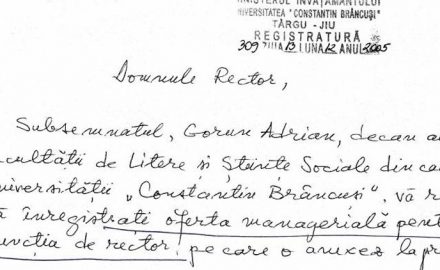 MINISTERUL ÎNVĂŢĂMÂNTULUI
UNIVERSITATEA "CONSTANTIN BRÂNCUŞI"
TÂRGU - JIU
REGISTRATURĂ
309 ZIUA 13 LUNA 12 ANUL 2005
Domnule Rector,
Subsemnatul, Gorun Adrian, decan a
cultății de Litere și Științe Sociale din ca
niversității „Constantin Brâncuși”, vă r
ă înregistrați oferta managerială pent
uncția de rector, pe care o anexez la pr